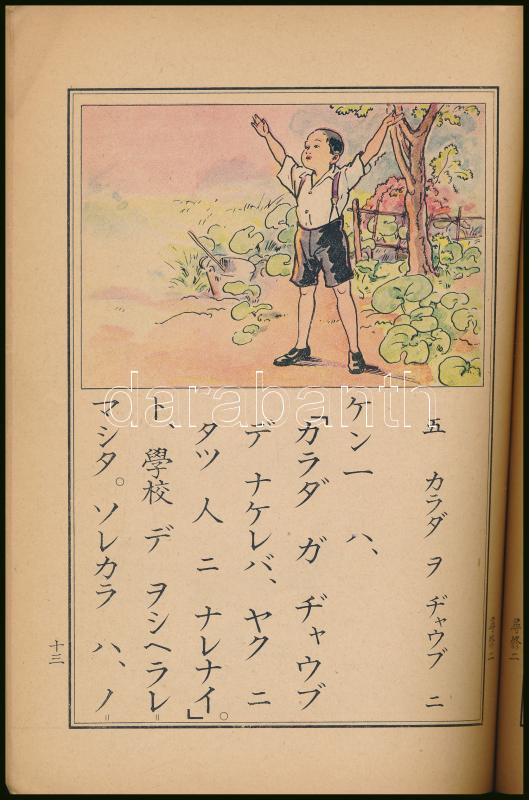 五 カラダ ヲ ヂャウブ ニ
ケン一 ハ、
「カラダ ガ ヂャウブ
デ ナケレバ、ヤク ニ
タツ 人 ニ ナレナイ。」
ト、學校 デ ヲシヘラレ＝
マシタ。ソレカラ ハ、ノ＝
十三
尋修二
尋修二
darabanth